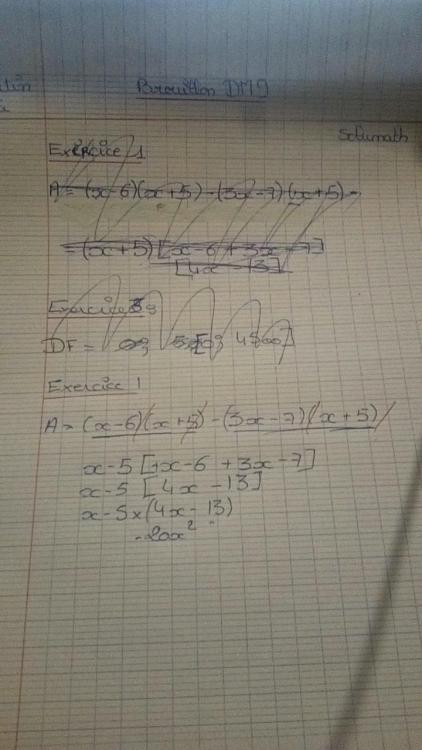 Brouillon DM9
Solumath
Exercice 1
A = (x-6)(x+5)-(3x-7)(x+5) =
= (x+5)[x-6+3x-7]
[4x-13]
Exercice 3:
DF =
Exercice 1
A = (x-6)(x+5)-(3x-7)(x+5)
x-5[+x-6+3x-7]
x-5[4x-13]
x-5×(4x-13)
-20x²